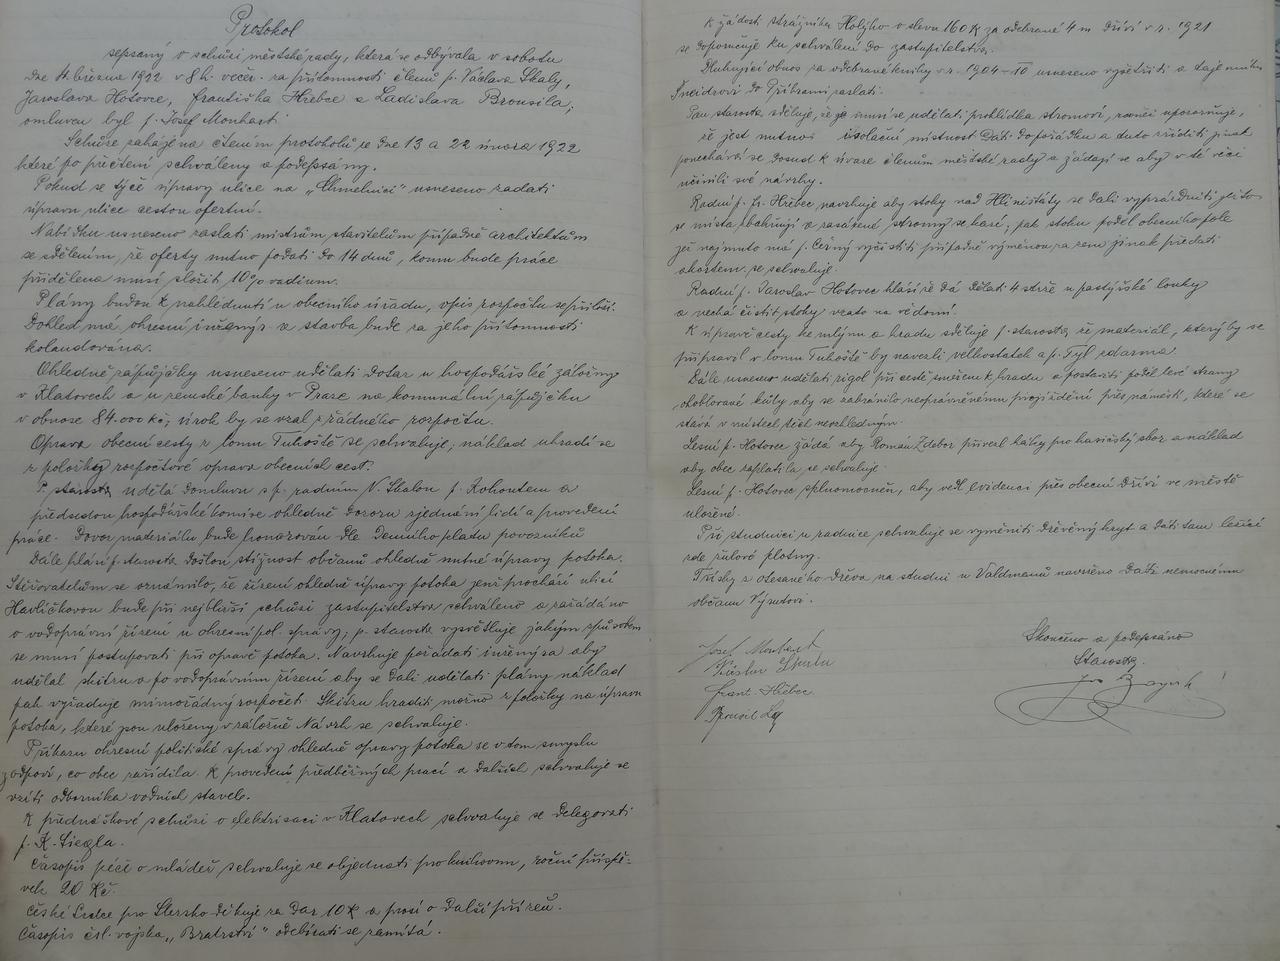 Protokol
sepsaný o schůsi městské rady, která se odbývala v sobotu
dne 4. března 1922 v 8 h. večer. za přítomnosti členů p. Václava Skaly,
Jaroslava Hotovce, Františka Hřebce a Ladislava Brousila,
omluven byl p. Josef Monhart.
Schůse zahájena čtením protokolů ze dne 13 a 22 února 1922
které po přečtení schváleny a podepsány.
Pokud se týče úpravy ulice na „Chmelnici" usneseno zadati
úpravu ulice cestou ofertní.
Nabídku usneseno zaslati mistrům stavitelům případně architektům
se sdělením, že oferty nutno podati do 14 dnů, komu bude práce
přidělena musí složit 10% vadium.
Plány budou k nahlédnutí u obecního úřadu, opis rozpočtu se přiloží.
Dohled má okresní inženýr a stavba bude za jeho přítomnosti
kolaudována.
Ohledně zápůjčky usneseno udělati dotaz u hospodářské záložny
v Klatovech a u zemské banky v Praze na komunální zápůjčku
v obnose 84.000 kč, úrok by se vzal z řádného rozpočtu.
Oprava obecní cesty z lomu Tuhoště se schvaluje; náklad uhradí se
z položky rozpočtové oprava obecních cest.
P. starosta udělá domluvu s p. radním V. Skalou p. Kohoutem a
předsedou hospodářské komise ohledně dozoru zjednání lidí a provedení
práce. Dovoz materiálu bude honorován dle denního platu povozníků
Dále hlásí p. starosta došlou stížnost občanů ohledně nutné úpravy potoka.
Stěžovatelům se oznámilo, že řízení ohledně úpravy potoka jenž prochází ulicí
Havlíčkovou bude při nejbližší schůsi zastupitelstva schváleno a zažádáno
o vodoprávní řízení u okresní pol. správy; p. starosta vysvětluje jakým způsobem
se musí postupovati při opravě potoka. Navrhuje požádati inženýra aby
udělal skitzu a po vodoprávním řízení aby se dali udělati plány náklad
pak vyžaduje mimořádný rozpočet. Skitzu hraditi možno z položky na úpravu
potoka, které jsou uloženy v záložně. Návrh se schvaluje.
Příkazu okresní politické správy ohledně opravy potoka se v tom smyslu
zodpoví, co obec zařídila. K provedení předběžných prací a dalších schvaluje se
vzíti odborníka vodních staveb.
K přednáškové schůsi o elektrisaci v Klatovech schvaluje se delegovati
p. K. Siegla.
Časopis péče o mládež schvaluje se objednati pro knihovnu, roční příspě-
vek 20 Kč.
České Srdce pro Slezsko děkuje za dar 10 K a prosí o další přízeň.
Časopis čsl. vojska „Bratrství" odebírati se zamítá.
K žádosti strážníka Holýho o slevu 160 K za odebrané 4 m dříví v r. 1921
se doporučuje ku schválení do zastupitelstva.
Dlužnící obnos za odebrané knihy v r. 1904–10 usneseno vyšetřiti a tajemníku
Šneidrovi do Příbrami zaslati.
Pan starosta sděluje, že je nutno se udělati prohlídka stromoví, rovněž upozorňuje,
že jest nutno isolační místnost dáti do pořádku a tuto zříditi jinak
ponechává se dosud k úvaze členům městské rady a žádají se aby v té věci
učinili své návrhy.
Radní p. Fr. Hřebec navrhuje aby stoky nad Hliništáty se dali vyprázdniti, jelikož
se místa zbahňují a zasázené stromy se kazí, pak stoku podél obecního pole
jež najmuto má p. Černý vyčistiti případně výměnou za zem jinak předati
akordem, se schvaluje.
Radní p. Jaroslav Hotovec hlásí že dá dělati 4 strže u pastýřské louky
a nechá čistit stoky vzato na vědomí.
K úpravě cesty ke mlýnu a hradu sděluje p. starosta že materiál, který by se
připravil v lomu Tuhoště by navezli velkostatek a p. Tyl zdarma.
Dále usneseno udělati rigol při cestě směrem k hradu a postaviti podél levé strany
okoblované kůly aby se zabránilo neoprávněnému projíždění přes náměstí, které se
stává v místech těch neschledným.
Lesní p. Hotovec žádá aby Roman Zdebor přivezl háky pro hasičský sbor a náklad
aby obec zaplatila se schvaluje.
Lesní p. Hotovec splnomocněn, aby vedl evidenci přes obecní dříví ve městě
uložené.
Při studnici u radnice schvaluje se vyměniti dřevěný kryt a dáti tam ležící
zde žulové plotny.
Třísky z otesaného dřeva na studni u Valdmanů navrženo dáti nemocnému
občanu Výrutovi.
Skončeno a podepsáno
Starosta
Josef Monhart
Franti. Hřebec
Brousil La